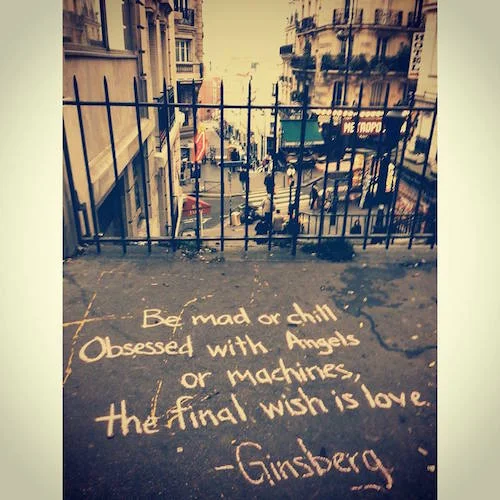 HOTEL
METROPO
Be mad or chill
Obsessed with Angels
or machines,
the final wish is love.
-Ginsberg